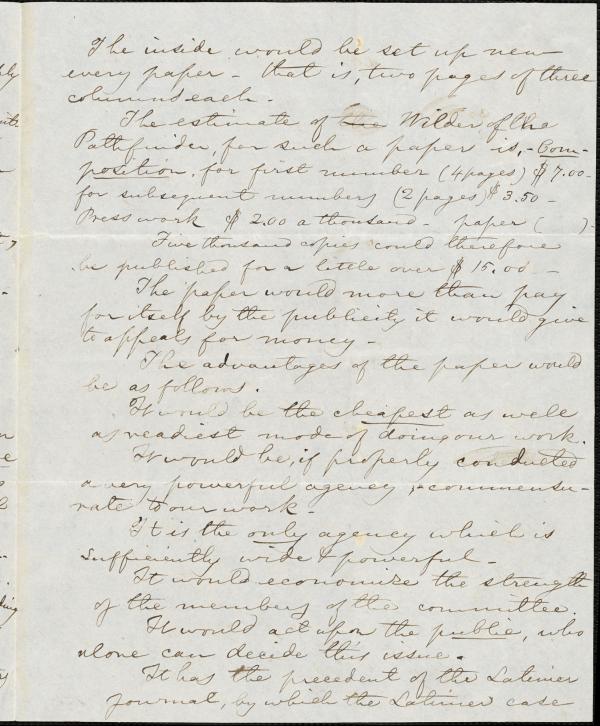 The inside would be set up new
every paper - that is, two pages of three
columns each -
The estimate of the Wilder of the
Pathfinder for such a paper is, - Com-
position, for first number (4 pages) $7.00 -
for subsequent numbers (2 pages) $3.50 -
Presswork $2.00 a thousand - paper (      ).
Five thousand copies could therefore
be published for a little over $15.00 -
The paper would more than pay
for itself by the publicity it would give
to appeals for money -
The advantages of the paper would
be as follows.
It would be the cheapest as well
as readiest mode of doing our work.
It would be, if properly conducted
a very powerful agency, commensu-
rate to our work -
It is the only agency which is
sufficiently wide & powerful -
It would economize the strength
of the members of the committee.
It would act upon the public, who
alone can decide this issue -
It has the precedent of the Latimer
Journal, by which the Latimer case